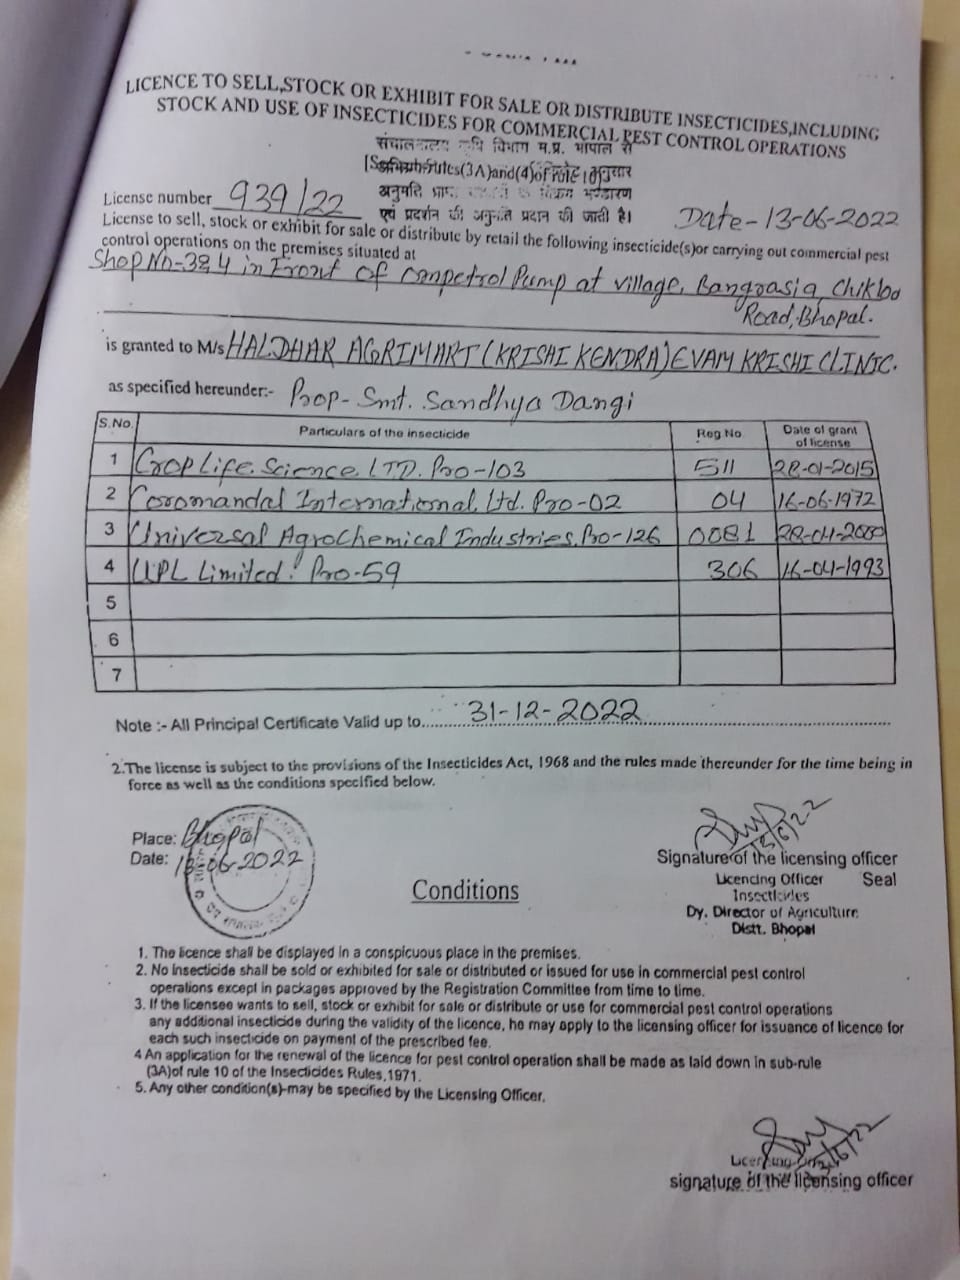 LICENCE TO SELL,STOCK OR EXHIBIT FOR SALE OR DISTRIBUTE INSECTICIDES,INCLUDING
STOCK AND USE OF INSECTICIDES FOR COMMERCIAL PEST CONTROL OPERATIONS
संचालनालय कृषि विभाग म.प्र. भोपाल से
(3A)and(4)of
अनुमति भण्डारण
License number 939/22
एवं प्रदर्शन की अनुमति प्रदान की जाती है।
Date-13-06-2022
License to sell, stock or exhibit for sale or distribute by retail the following insecticide(s)or carrying out commercial pest
control operations on the premises situated at
Shop No-384 in Front of Petrol Pump at village, Bangrasia, Chiklod
Road, Bhopal.
is granted to M/s HALDHAR AGRIMART (KRISHI KENDRA) EVAM KRISHI CLINIC.
as specified hereunder:- Prop- Smt. Sandhya Dangi
S.No. Particulars of the insecticide Reg.No. Date of grant of license
1 Crop Life Science LTD. Pro-103 511 28-01-2015
2 Coromandal International Ltd. Pro-02 04 16-06-1972
3 Universal Agrochemical Industries. Pro-126 0081 28-04-2000
4 UPL Limited. Pro-59 306 16-04-1993
5
6
7
Note :- All Principal Certificate Valid up to 31-12-2022
2.The license is subject to the provisions of the Insecticides Act, 1968 and the rules made thereunder for the time being in
force as well as the conditions specified below.
Place: Bhopal
Date: 13-06-2022
13/6/22
Signature of the licensing officer
Licencing Officer Seal
Insecticides
Dy. Director of Agriculture
Distt. Bhopal
Conditions
1. The licence shall be displayed in a conspicuous place in the premises.
2. No Insecticide shall be sold or exhibited for sale or distributed or issued for use in commercial pest control
operations except in packages approved by the Registration Committee from time to time.
3. If the licensee wants to sell, stock or exhibit for sale or distribute or use for commercial pest control operations
any additional insecticide during the validity of the licence, he may apply to the licensing officer for issuance of licence for
each such insecticide on payment of the prescribed fee.
4 An application for the renewal of the licence for pest control operation shall be made as laid down in sub-rule
(3A)of rule 10 of the Insecticides Rules,1971.
5. Any other condition(s)-may be specified by the Licensing Officer.
signature of the licensing officer